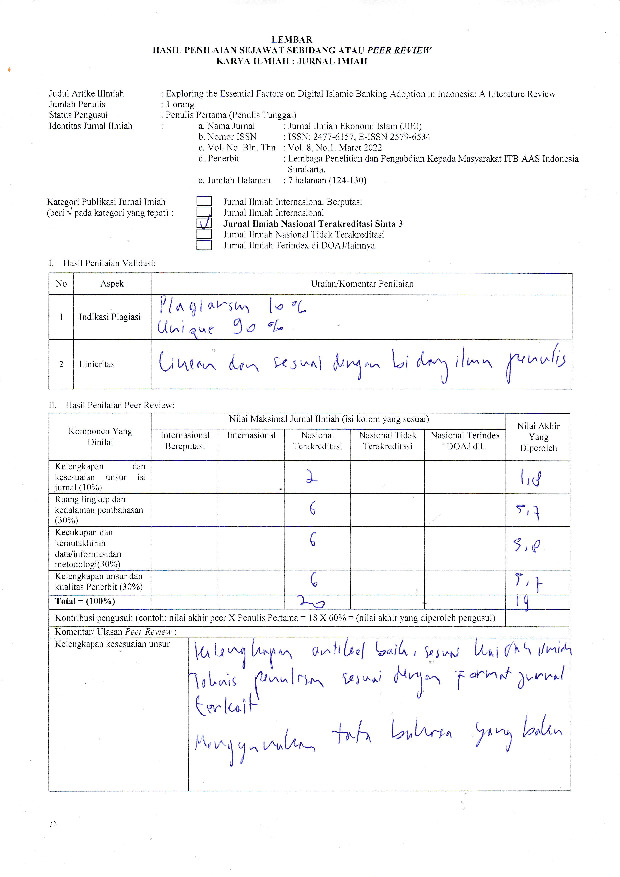 LEMBAR
HASIL PENILAIAN SEJAWAT SEBIDANG ATAU PEER REVIEW
KARYA ILMIAH : JURNAL IMIAH
Judul Artike Ilmiah : Exploring the Essential Factors on Digital Islamic Banking Adoption in Indonesia: A Literature Review
Jumlah Penulis : 1 orang
Status Pengusul : Penulis Pertama (Penulis Tunggal)
Identitas Jurnal Ilmiah : a. Nama Jurnal : Jurnal Ilmiah Ekonomi Islam (JIEI)
b. Nomor ISSN : ISSN: 2477-6157, E-ISSN 2579-6534
c. Vol. No. Bln. Thn : Vol. 8, No.1, Maret 2022
d. Penerbit : Lembaga Penelitian dan Pengabdian Kepada Masyarakat ITB AAS Indonesia
Surakarta.
e. Jumlah Halaman : 7 halaman (124-130)
Kategori Publikasi Jurnal Ilmiah Jurnal Ilmiah Internasional Bereputasi
(beri √ pada kategori yang tepat) : Jurnal Ilmiah Internasional
√ Jurnal Ilmiah Nasional Terakreditasi Sinta 3
Jurnal Ilmiah Nasional Tidak Terakreditasi
Jurnal Ilmiah Terindex di DOAJ/lainnya
I. Hasil Penilaian Validasi:
No Aspek Uraian/Komentar Penilaian
1 Indikasi Plagiasi Plagiarism 10 %
Unique 90 %
2 Linieritas Linear dan sesuai dengan bidang ilmu penulis
II. Hasil Penilaian Peer Review:
Komponen Yang Dinilai
Nilai Maksimal Jurnal Ilmiah (isi kolom yang sesuai)
Nilai Akhir Yang Diperoleh
Internasional Bereputasi
Internasional
Nasional Terakreditasi
Nasional Tidak Terakreditasi
Nasional Terindex DOAJ dll.
Kelengkapan dan
kesesuaian unsur isi
jurnal (10%) 2 1,8
Ruang lingkup dan
kedalaman pembahasan
(30%) 6 5,7
Kecukupan dan
kemutakhiran
data/informasi dan
metodologi (30%) 6 5,8
Kelengkapan unsur dan
kualitas Penerbit (30%) 6 5,7
Total = (100%) 20 19
Kontribusi pengusul: (contoh: nilai akhir peer X Penulis Pertama = 18 X 60% = (nilai akhir yang diperoleh pengusul)
Komentar/ Ulasan Peer Review :
Kelengkapan kesesuaian unsur
Kelengkapan artikel baik, sesuai ilmiah
Teknis penulisan sesuai dengan format jurnal
terkait
Menggunakan tata bahasa yang baku